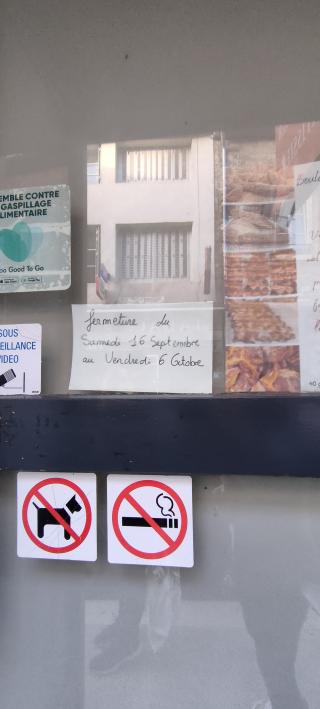 EMBLE CONTRE
GASPILLAGE
LIMENTAIRE
oo Good To Go
SOUS
EILLANCE
VIDEO
fermeture du
Samedi 16 Septembre
au Vendredi 6 Octobre